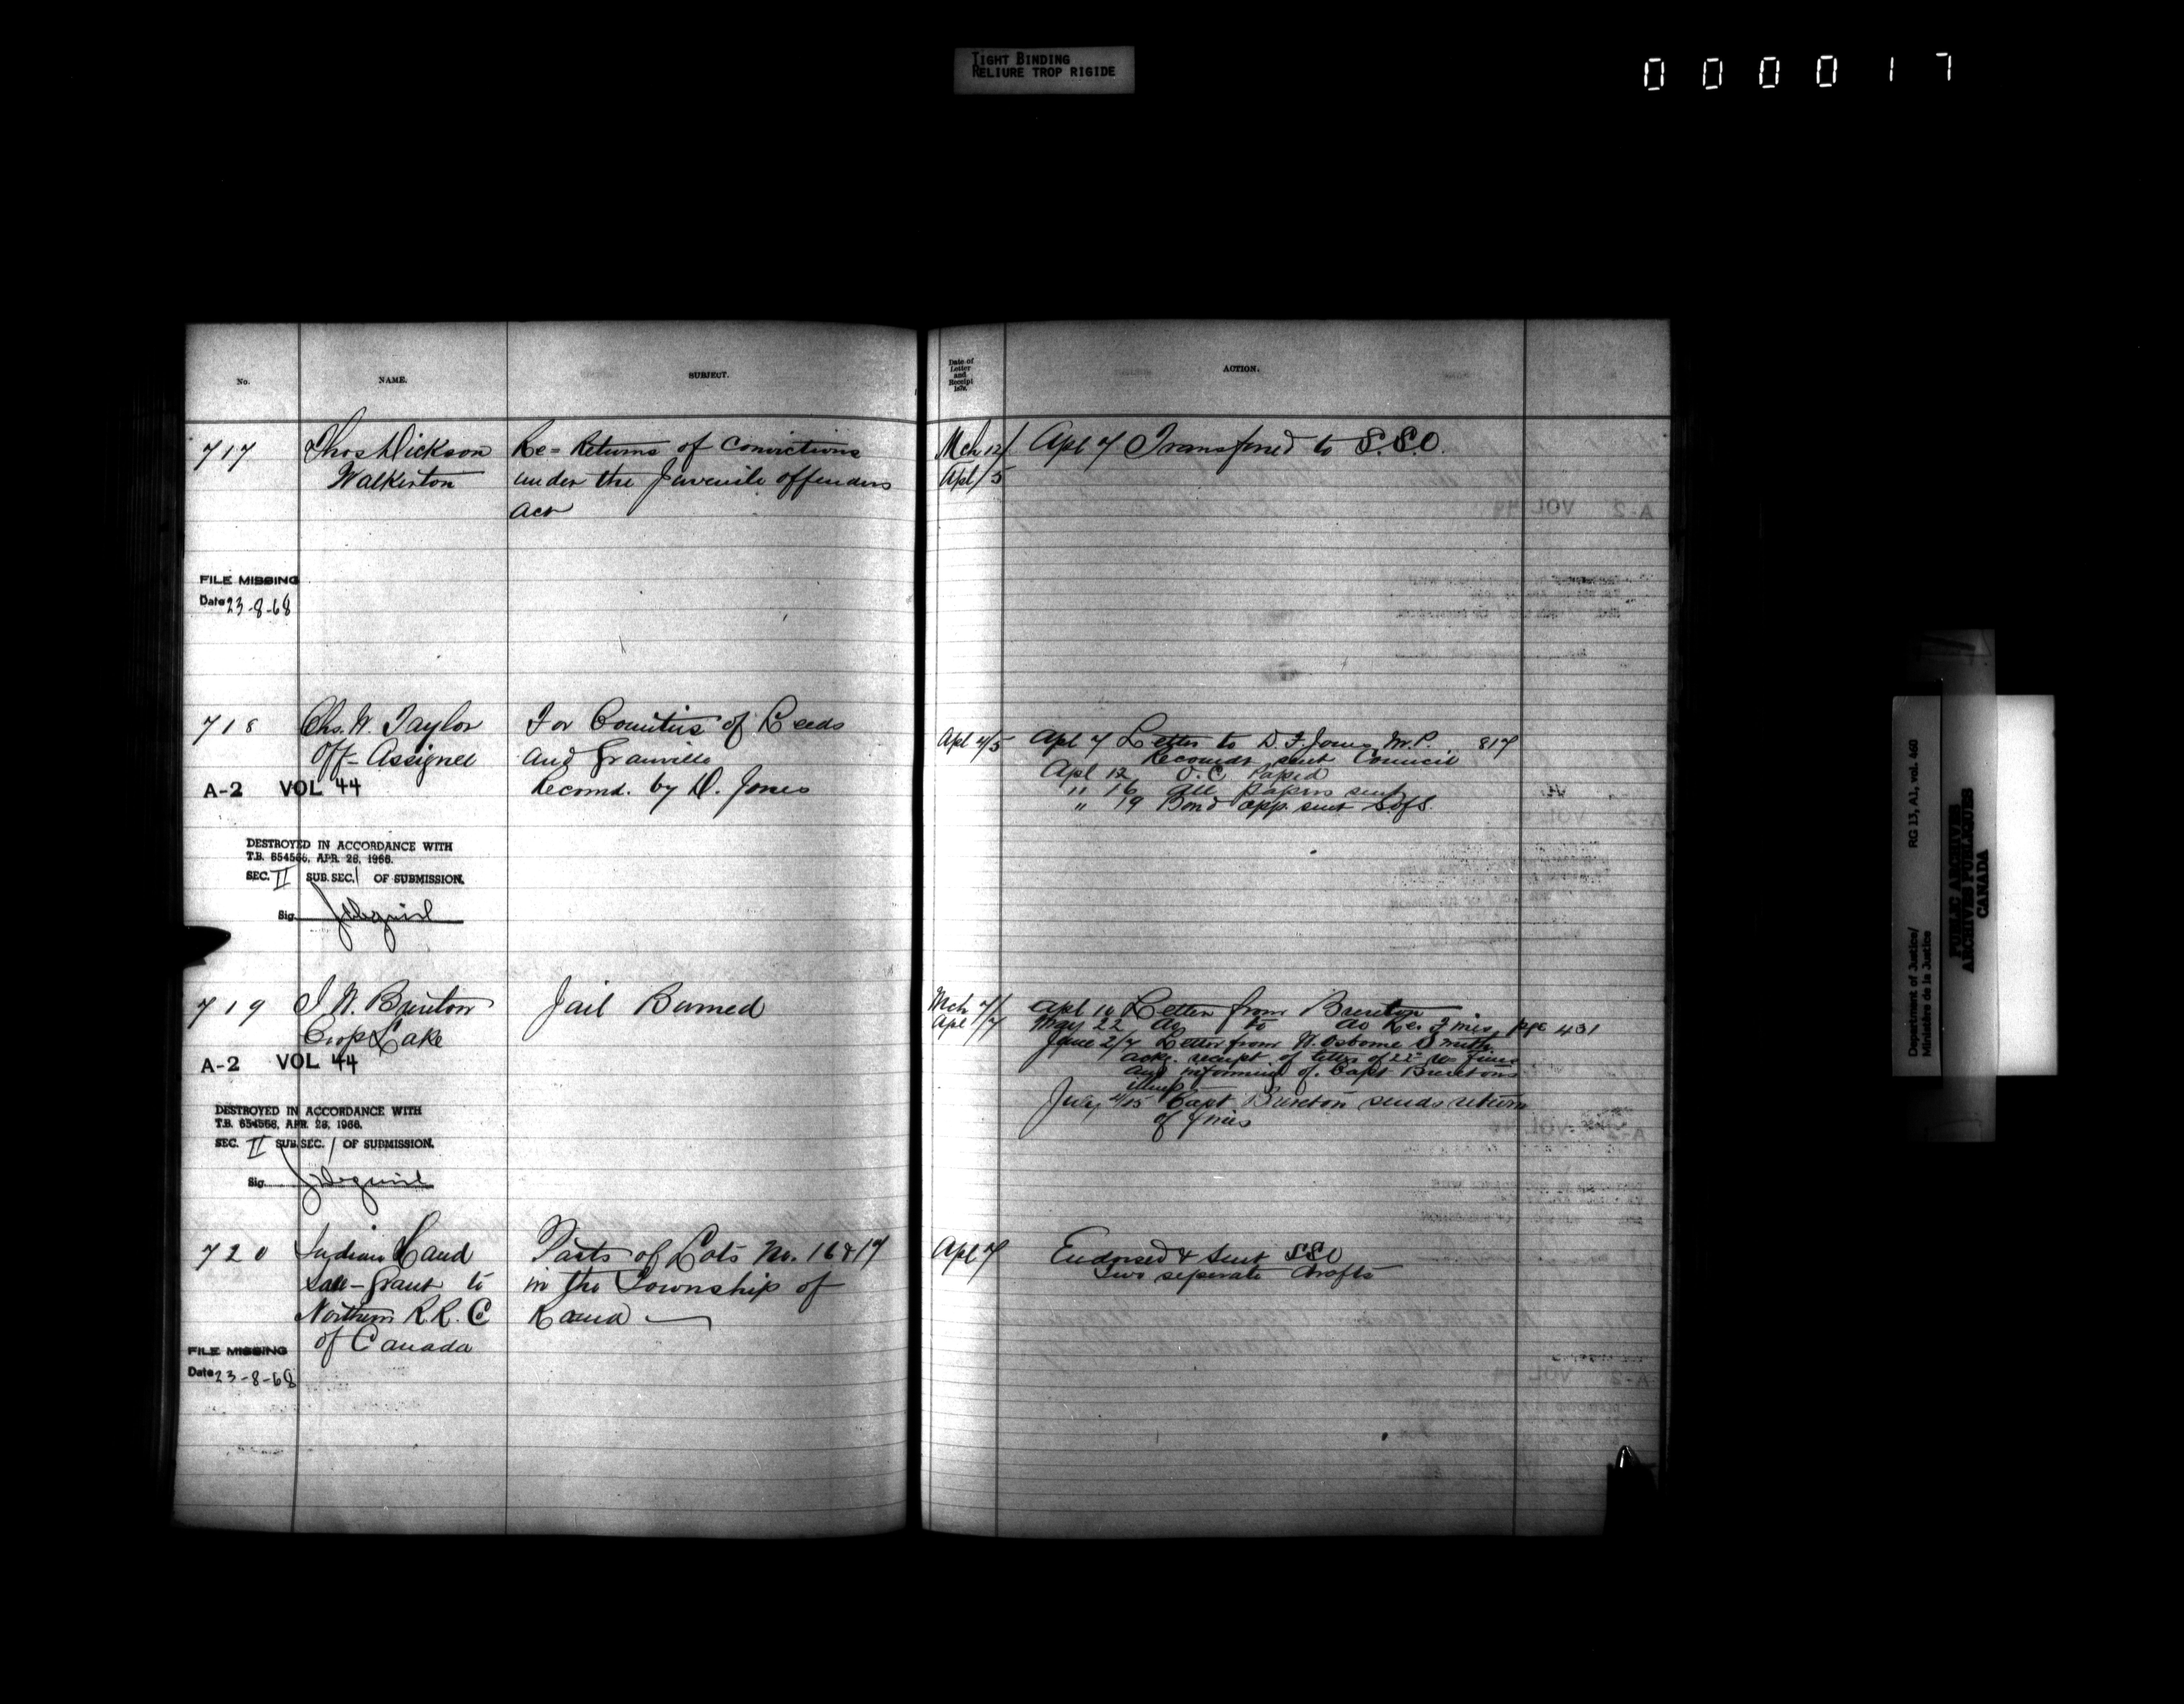 TIGHT BINDING
RELIURE TROP RIGIDE
000017
No.
NAME.
SUBJECT.
Date of
Letter
and
Receipt
187
ACTION.
717
Thos Dickson
Walkerton
Re = Returns of Convictions
under the Juvenile offenders
act
Mch 12/
Apl/5
Apl 7 Transferred to S.S.O.
FILE MISSING
Date 23-8-68
718
Chs. W. Taylor
Off- Assignee
For Counties of Leeds
and Granville
Recomd. by D. Jones
Apl 4/5
Apl 7 Letter to D. F. Jones, M.P. 817
Recomdr sent Council
Apl 12 O.C. Papsed
" 16 all papers sent
" 19 Bond app. sent S.ofS.
A-2 VOL 44
DESTROYED IN ACCORDANCE WITH
T.B. 654566, APR. 28, 1966.
SEC. II SUB. SEC. 1 OF SUBMISSION.
Sig.
719
J. W. Breeton
Lake
Jail Burned
Mch 7/
Apl /7
Apl 10 Letter from Breeton
May 22 do to do Re: Fines, pge 431
June 2/7 Letter from W. Osborne Smith
ackg. receipt of letter of 22 re fines
and informing of Capt Breetons
July 4/15 Capt Breeton sends return
of fines
A-2 VOL 44
DESTROYED IN ACCORDANCE WITH
T.B. 654566, APR. 28, 1966.
SEC. II SUB. SEC. 1 OF SUBMISSION.
Sig.
720
Indian Land
Sale - Grant to
Northern R.R. C
of Canada
Parts of Lots No. 16 & 17
in the Township of
Rama
Apl 7
Endorsed & Sent SSO
Two seperate drafts
FILE MISSING
Date 23-8-68
Department of Justice/
Ministère de la Justice
RG 13, A1, vol. 460
PUBLIC ARCHIVES
ARCHIVES PUBLIQUES
CANADA